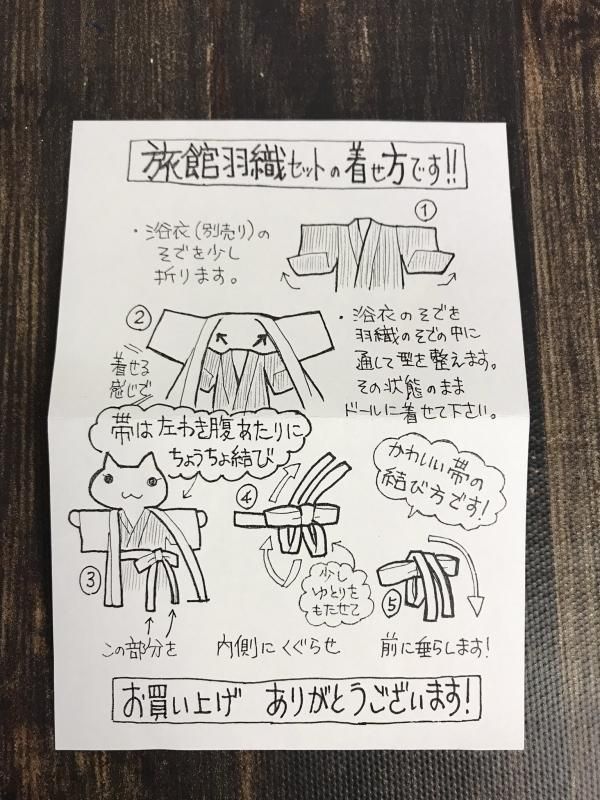 旅館羽織セットの着せ方です!!
①
・浴衣(別売り)の
そでを少し
折ります。
②
着せる
感じで
・浴衣のそでを
羽織のそでの中に
通して型を整えます。
その状態のまま
ドールに着せて下さい。
帯は左わき腹あたりに
ちょうちょ結び
③
この部分を
④
少し
ゆとりを
もたせて
内側にくぐらせ
かわいい帯の
結び方です!
⑤
前に垂らします!
お買い上げ ありがとうございます!